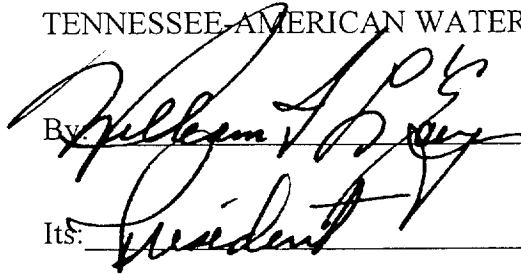 TENNESSEE-AMERICAN WATER
By: William F
Its: President